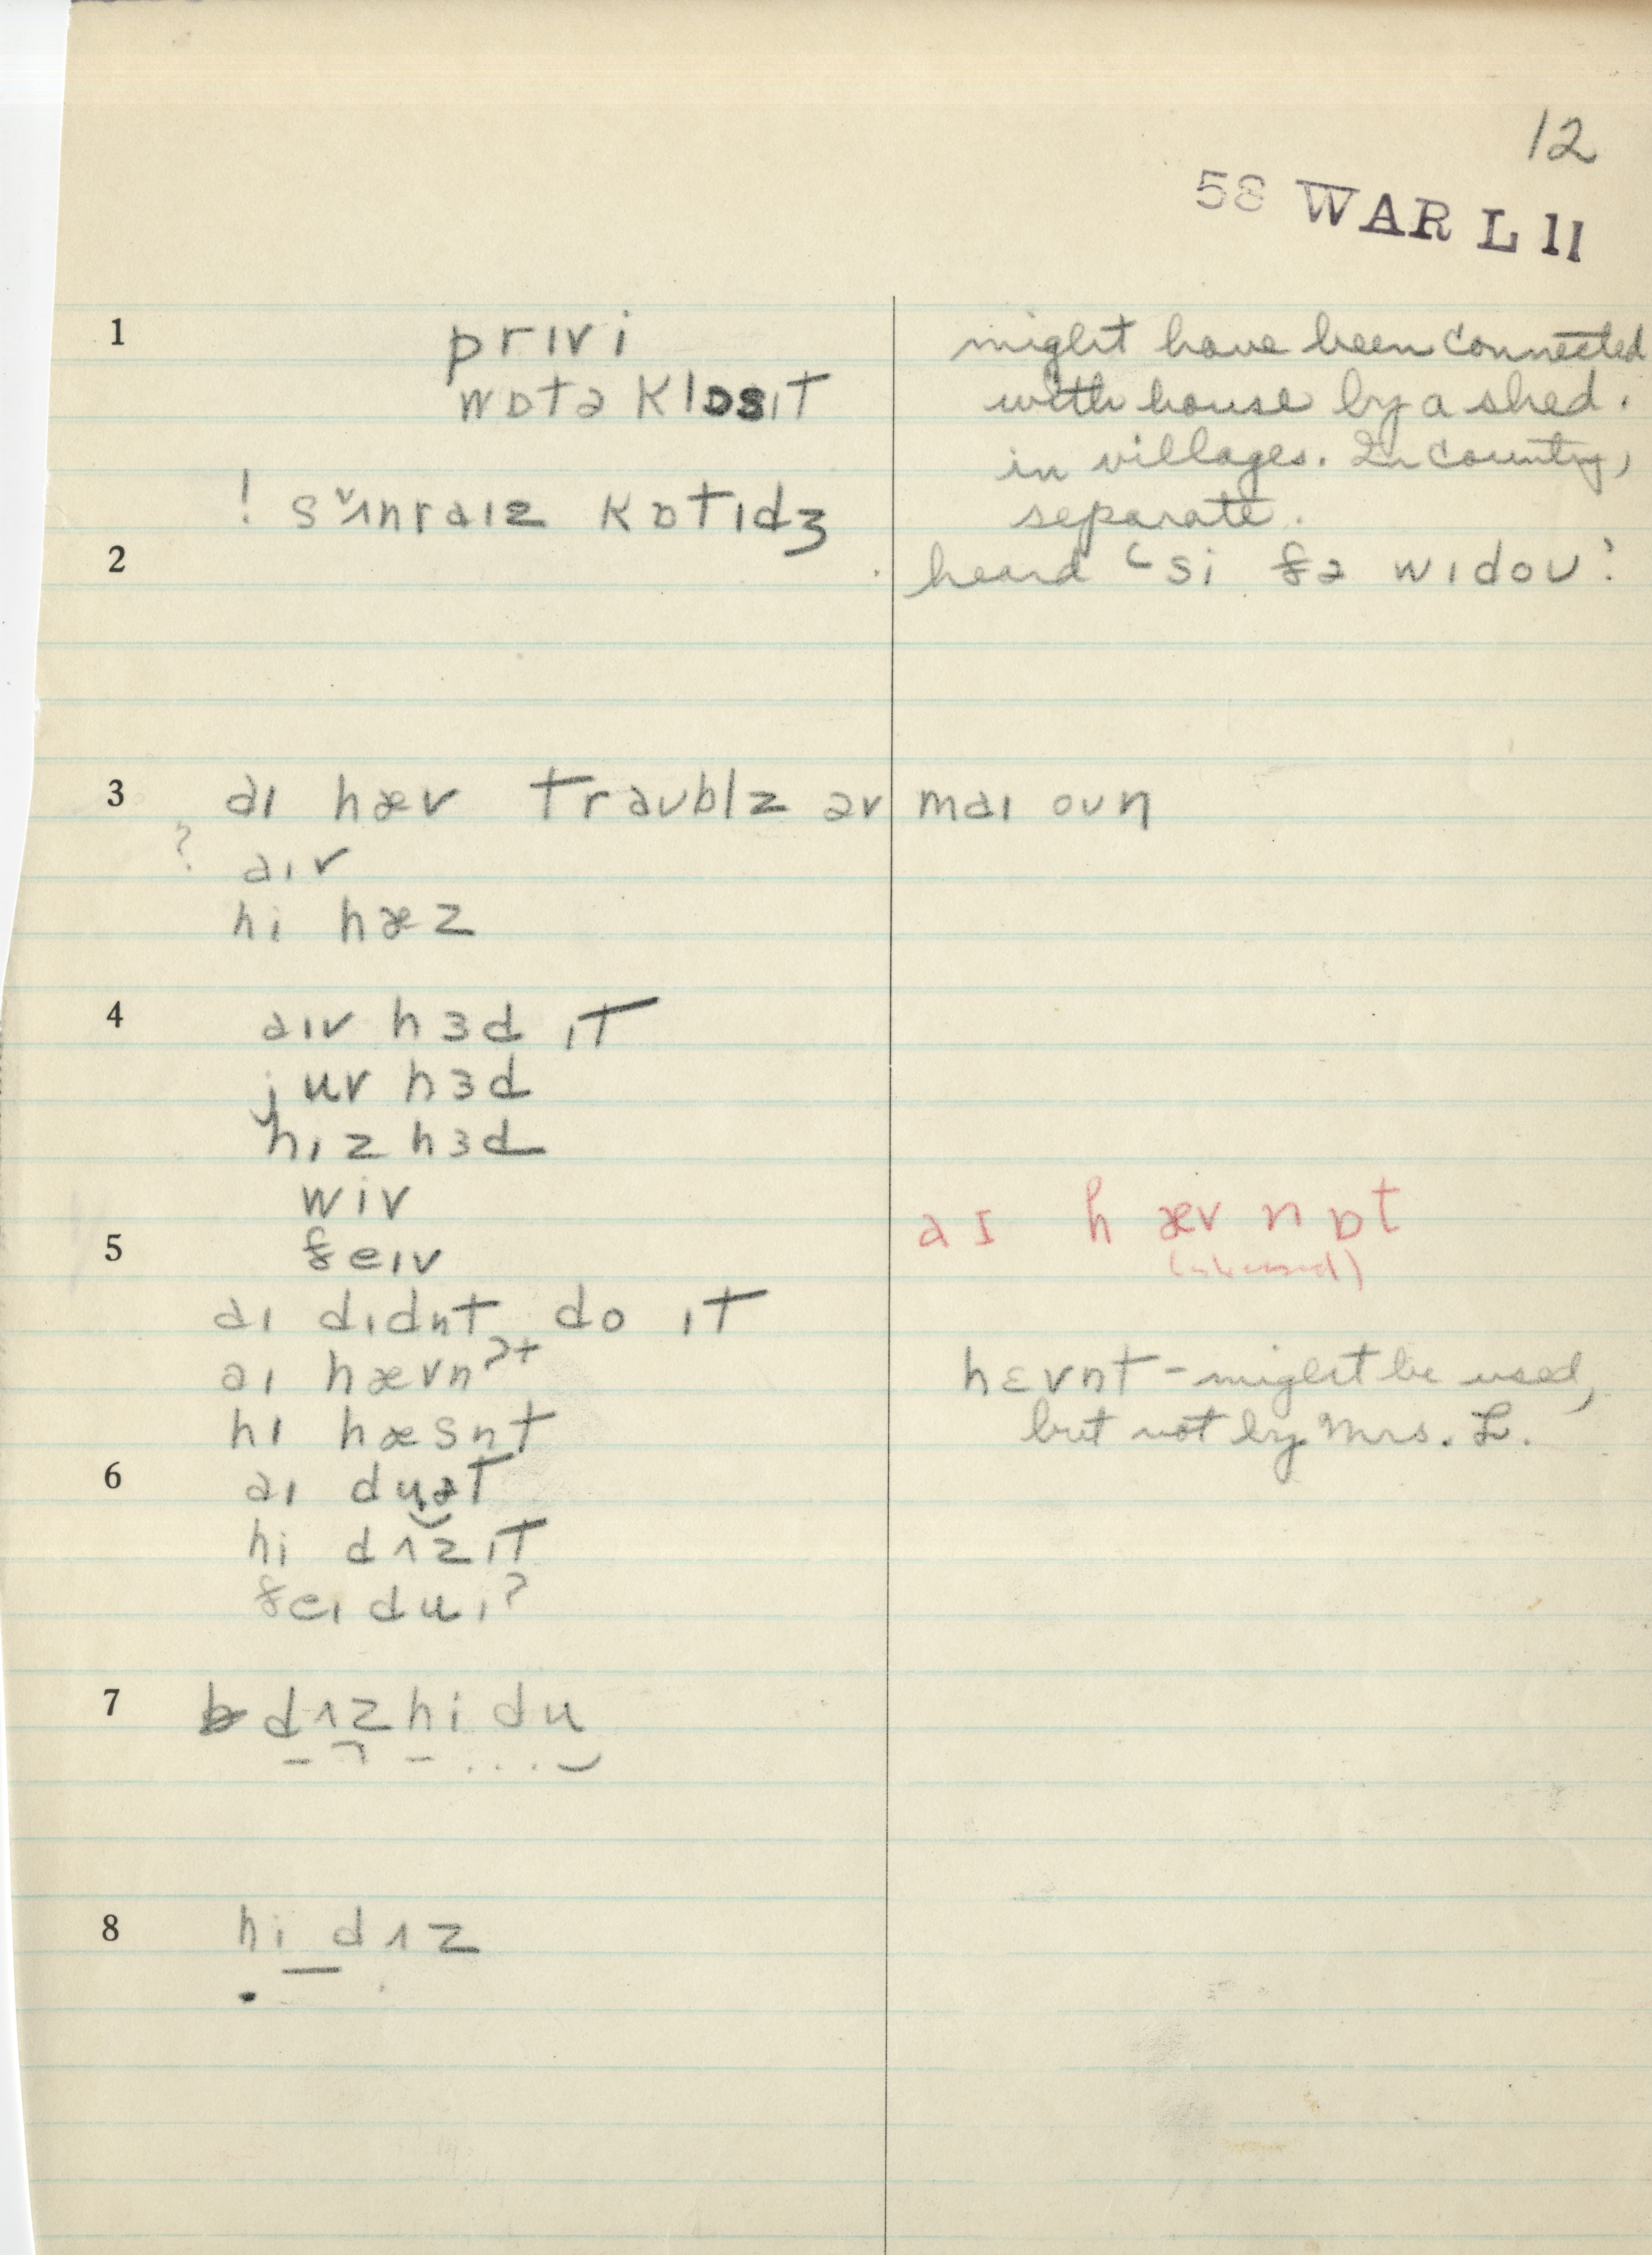 12
58 WAR L 11
1 prɪvi might have been connected
wɒtə klɒsɪt with house by a shed.
in villages. In country,
! sʌnraɪz kɒtɪdʒ separate.
2 heard ‘si ðə wɪdoʊ’
3 aɪ hæv traʊblz əv maɪ oʊn
? aɪv
hi hæz
4 aɪv hɜd ɪt
juv hɜd
hiz hɜd
wiv aɪ hæv nɒt
5 ðeɪv
aɪ dɪdnt do ɪt
aɪ hævnˀt hɛvnt - might be used,
hɪ hæsnt but not by Mrs. L.
6 aɪ du ət
hi dʌz ɪt
ðeɪ du ɪˀ
7 dʌz hi du
8 hi dʌz